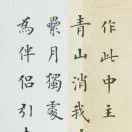 作此中主
青山消我
纍月獨處
為伴侶引